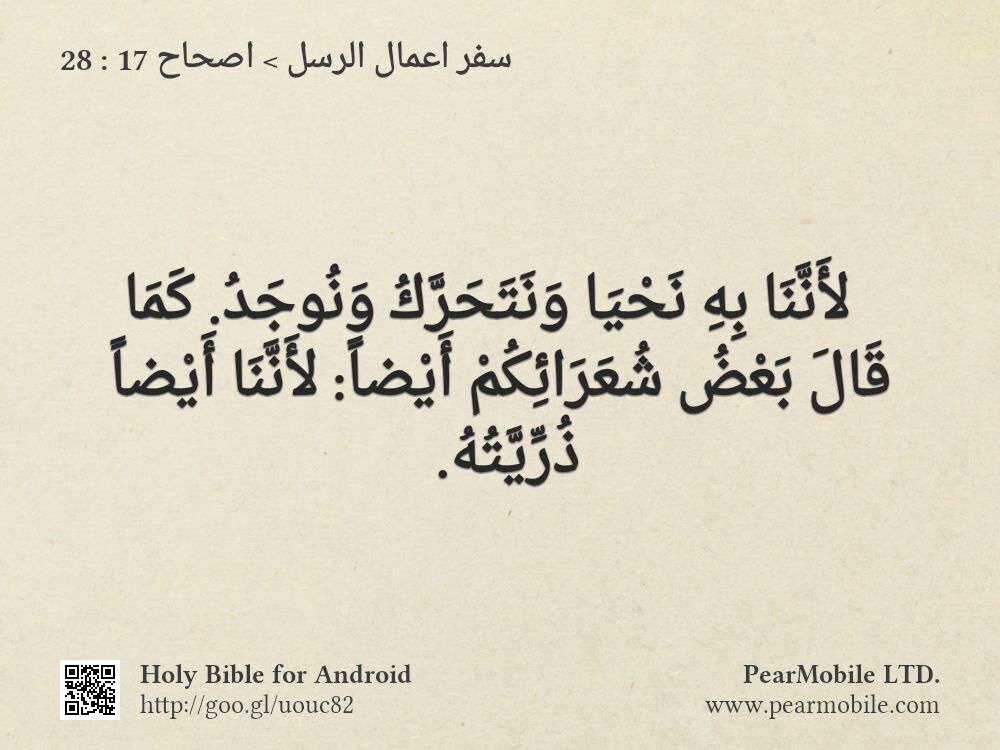 سفر اعمال الرسل > اصحاح 17 : 28
لأَنَّنَا بِهِ نَحْيَا وَنَتَحَرَّكُ وَنُوجَدُ. كَمَا
قَالَ بَعْضُ شُعَرَائِكُمْ أَيْضاً: لأَنَّنَا أَيْضاً
ذُرِّيَّتُهُ.
Holy Bible for Android
http://goo.gl/uouc82
PearMobile LTD.
www.pearmobile.com